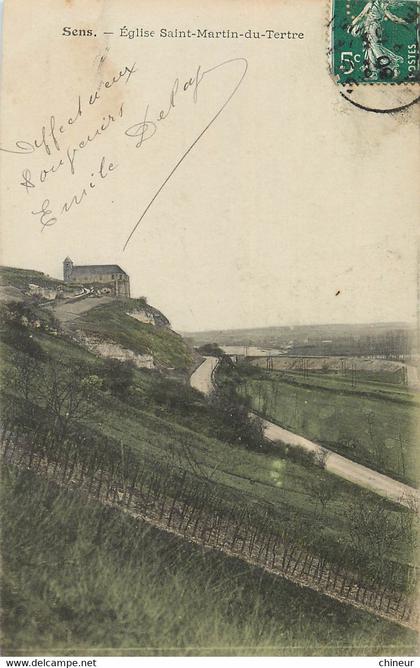 Sens. — Église Saint-Martin-du-Tertre
5c
POSTES
affectueux
souvenirs
Emile
© delcampe.net
chineur